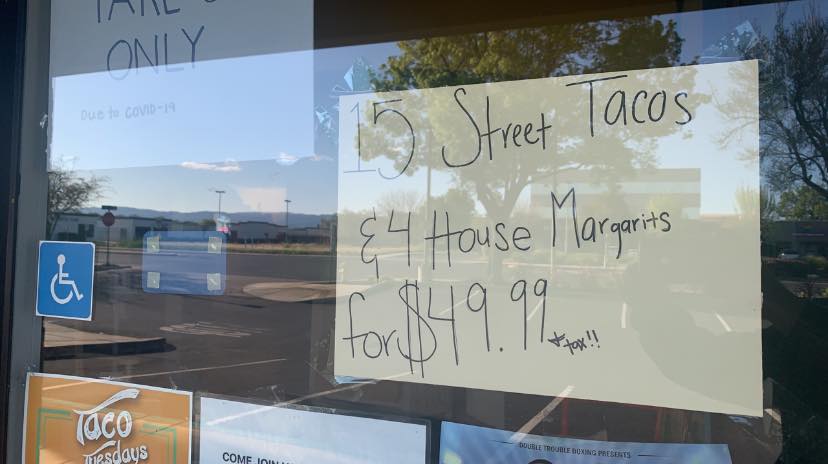 ONLY
Due to COVID-19
15 Street Tacos
& 4 House Margarits
for $49.99 *tax!!
Taco
Tuesdays
COME JOIN
DOUBLE TROUBLE BOXING PRESENTS